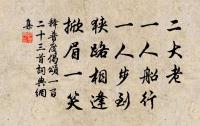 二大老
一人船行
一人步到
狹路相逢
掀眉一笑
釋普度偈頌一百
二十三首詞典網
集